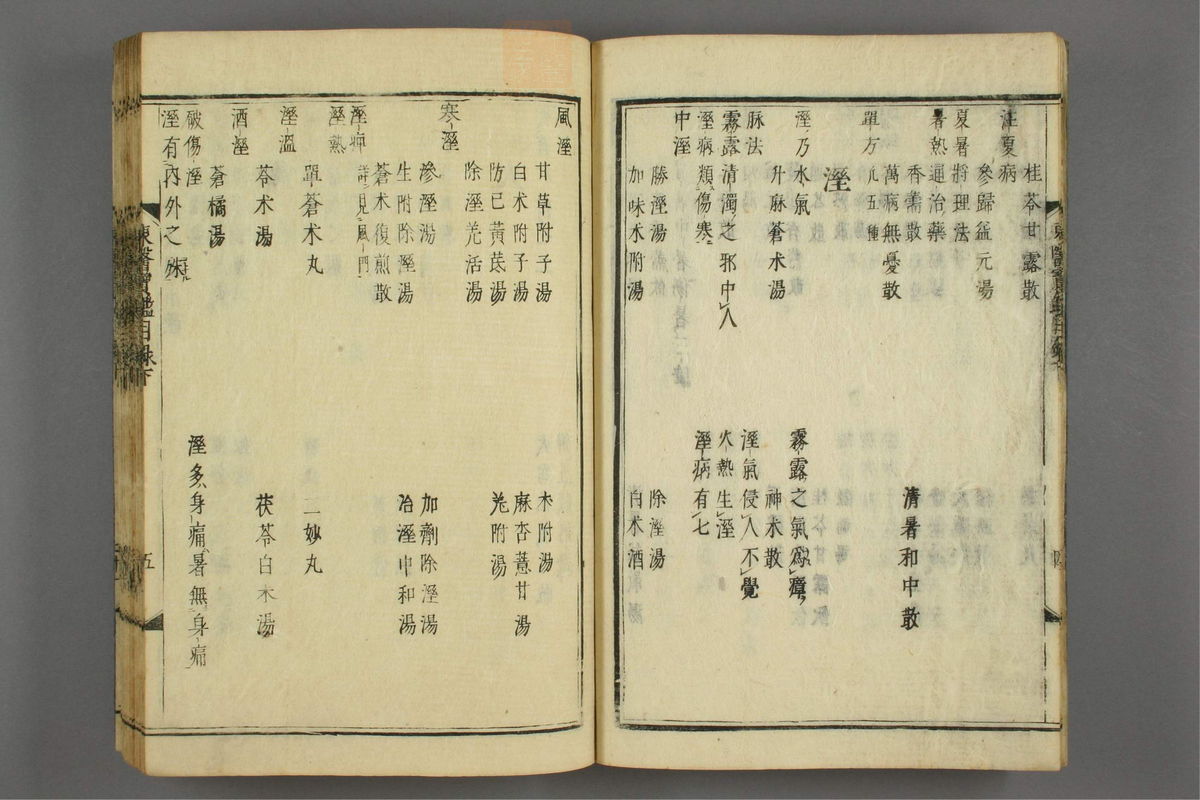 桂苓甘露散
注夏病
參歸益元湯
夏暑將理法
暑熱通治藥
香薷散　清暑和中散
萬病無憂散
單方凡五種
溼
溼乃水氣　霧露之氣爲瘴
升麻蒼朮湯　神朮散
脉法　溼氣侵人不覺
霧露淸濁之邪中人　火熱生溼
溼病類傷寒　溼病有七
中溼
勝溼湯　除溼湯
加味朮附湯　白朮酒
東醫寶鑑目錄下　四
風溼
甘草附子湯　朮附湯
白朮附子湯　麻杏薏甘湯
防己黃芪湯　羌附湯
除溼羌活湯
寒溼
滲溼湯　加劑除溼湯
生附除溼湯　治溼中和湯
蒼朮復煎散
溼痺詳見風門
溼熱
單蒼朮丸　二妙丸
溼溫
苓朮湯　茯苓白朮湯
酒溼
蒼橘湯
破傷溼　溼多身痛暑無身痛
溼有內外之殊
東醫寶鑑目錄下　五